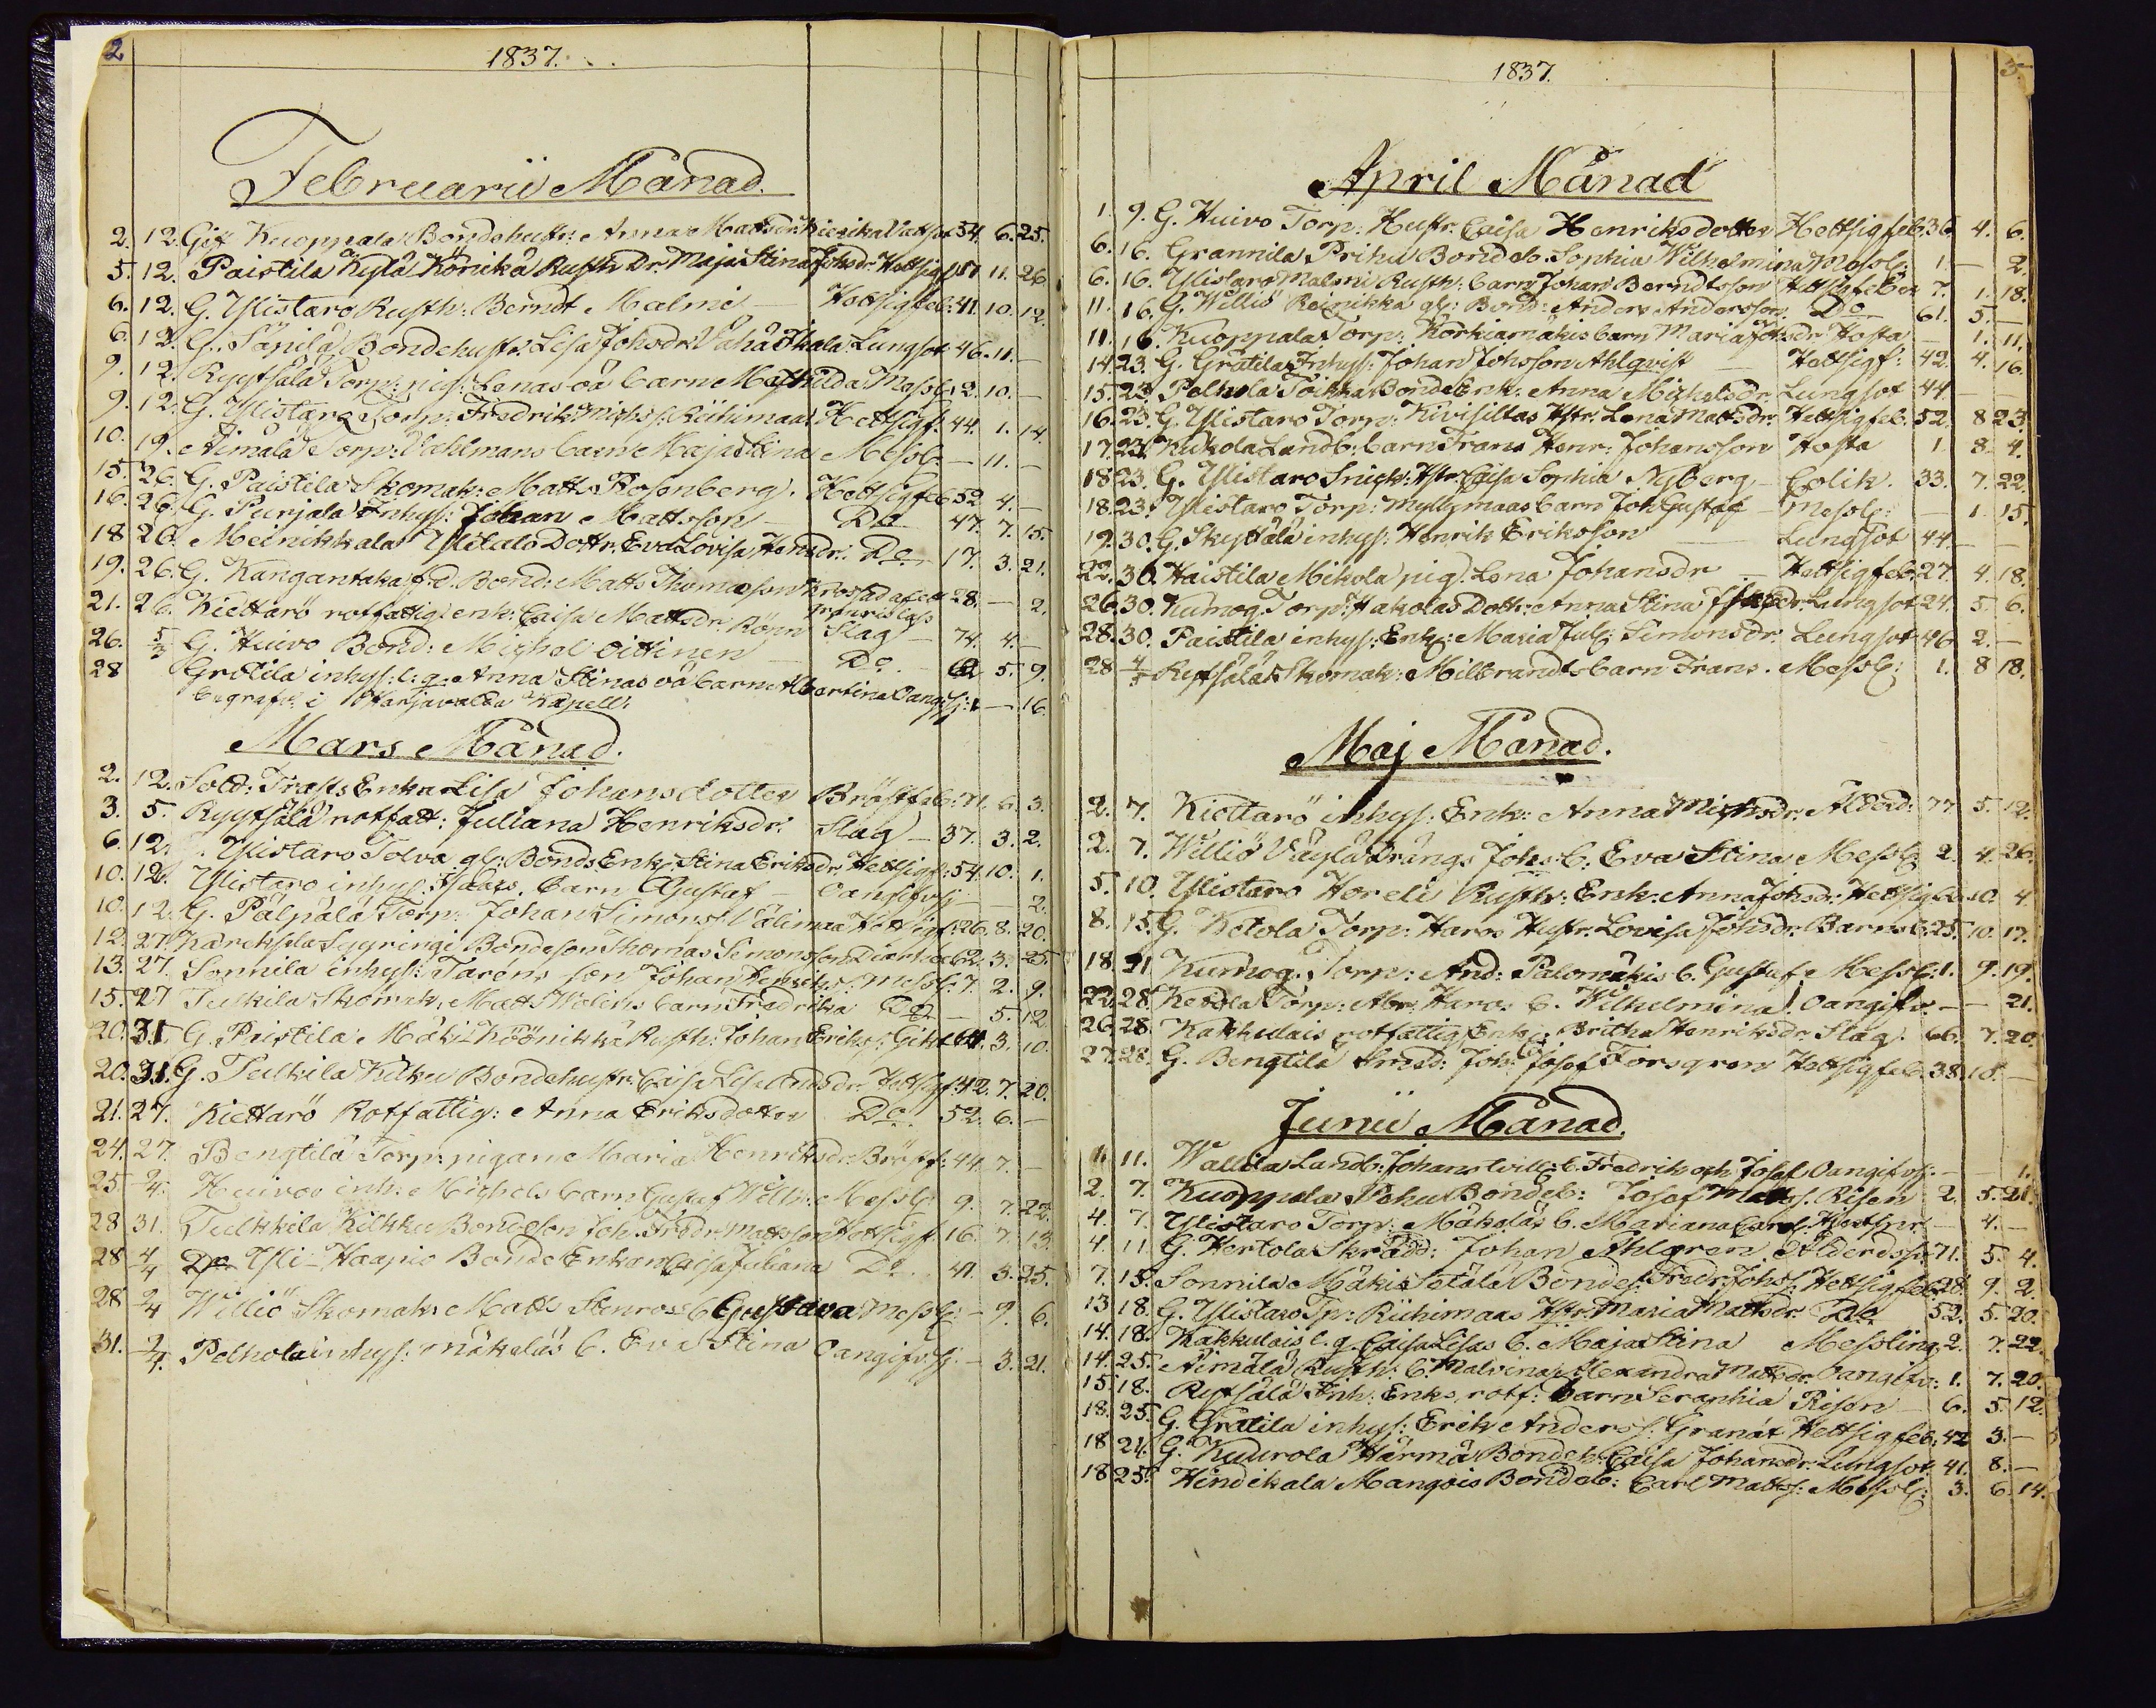 2
1837.
Februarii Månad.
2. 12. Gift Kuoppala Bondehustr: Anna Mattsdr. Vattsot 54. 6. 25.
5. 12. Paistila Kylä Könikä Rusth. Dr. Maja Stina Johsdr. Hettsigf 51. 11. 26.
6. 12. G. Ylistaro Rusth: Berndt Malmi — Hettsigfeb: 41. 10. 12.
6. 12. G. Sänilä Bondehustr. Lisa Johsdr. Vähä Ikala Lungsot 46. 11. —
9. 12. Ryytsälä Torp: pig: Lenas oä barn Mathilda Messl: 2. 10. —
9. 12. G. Ylistaro Torp: Fredrik Michs: Riihimaa Hettsigf. 44. 1. 14.
10. 19. Äimälä Torp: Dahlmans barn Maja Stina Messl: — 11. —
15. 26. G. Paistila Skomak: Matts Rosenberg. Hettsigfeb 52. 4. —
16. 26. G. Purjala Inhys: Johan Mattsson — Do 47. 7. 15.
18 26. Meinikkala Ylitalo Dottr. Eva Lovisa Henrdr: Do. 17. 3. 21.
19. 26. G. Kangantaka f.d. Bond: Matts Thomasson 28. — 2.
21. 26. Kiettarö rotfattig enk: Caisa Mattsdr. Rönn Slag — 74. 4. —
26. 5/3 G. Huivo Bond: Michel Oittinen — Do. — 62 5. 9.
28 Grötila inhys: l: q: Anna Stinas oä barn Albertina Oang: sj: — — 16.
begrafd. i Harjavalda Kapell:
Mars Månad.
2. 12. Sold: Trasts Enka Lisa Johansdotter Bröstfeb: 71. 6. 3.
3. 5. Ryytsälä rotfatt: Juliana Henriksdr. Slag — 37. 3. 2.
6. 12. G. Ylistaro Tolva gl: Bonds Enk: Stina Eriksdr. Hettsigf: 54. 10. 1.
10. 12. Ylistaro inhys: Isaacs. barn Gustaf — Oangifvsj — — 2.
10. 12. G. Pälpälä Torp: Johan Simons: Välimaa Hettsigf: 26. 8. 20.
12. 27. Bondeson Thomas Simonsson 62. 3. 25.
13. 27. Sonnila inhys: Tarens son Johan Henriks: Messl. 7. 2. 9.
15. 27 Tulkila Skomak: Matts Widens barn Fredrika Do — 5. 12
20. 31. G. Peistila Mäki Köönikkä Rusth: Johan Eriks: Gikt 64. 3. 10.
20. 31. G. Tulkila Kilku Bondehustr: Caisa Lisa Andsdr. Hettsigf: 42. 7. 20.
21. 27. Kiettarö Rotfattig: Anna Eriksdotter Do. 52. 6. —
24. 27. Bengtilä Torp: pigan Maria Henriksdr. Bröstf: 44. 7. —
25 2/4. Huivos inh: Michels barn Gustaf Wilh: Messl: 9. 7. 22.
28 31. Tulkkila Kilkku Bondeson Joh. Fredr. Mattsson Hettsigf 16. 7. 13.
28 4/4 Do Yli-Haapio Bonde Enkan Caisa Juliana Do. 41. 3. 25.
28 2/4 Williö Skomak: Matts Stenros b Gustava Messl: — 9. 6.
31. 2/4. Pelhola inhys: mäkeläs b. Eva Stina Oangifv. sj. — 3. 21.
1837.
3
April Månad
1. 9. G. Huivo Torp: Hustr. Caisa Henriksdotter Hettsigfeb. 36. 4. 6.
6. 16. Grannila Prihu Bondeb. Sophia Wilhelmina Messl: 1. — 2.
6. 16. Ylistaro Malmi Rusth: barn Johan Berndtsson Hettsigfeber 7. 1. 18.
11. 16. G. Williö Reinikka gl: Bond: Anders Andersson. Do 61. 5. —
11. 16. Kuoppala Torp: Körkiämäkis barn Maria Johsdr. Hosta — 1. 11.
14. 23. G. Grötila Inhys: Johan Johsson Ahlqvist — Hettsigf: 42. 4. 16.
15. 23. Pelhola Toikka Bonde Enk: Anna Michelsdr. Lungsot 44. — —
16. 23. G. Ylistaro Torp: Kivisillas Hstr. Lena Mattsdr: Hettsigfeb. 52. 8 23.
17. 23. Kukola Landb: barn Frans Henr: Johansson Hosta 1 8. 4.
18 23. G. Ylistaro Snick: Hstr. Caisa Sophia Nyberg — Colik. 33. 7. 22
18. 23. Ylistaro Torp: Myllymaas barn Joh. Gustaf — Messl: — 1. 15.
19. 30. G. Skytälä inhys: Henrik Eriksson — Lungsot 44. — —
22. 30. Haistila Mikola pig. Lena Johansdr — Hettsigfeb. 27. 4. 18.
26. 30. Kumog. Torp: Hakolas Dottr: Anna Stina Isacsdr. Lungsot 24. 5. 6.
28. 30. Paistila inhys: Enk: Maria Jul: Simonsdr. Lungsot 46 2. —
28 4/5 Rytsälä Skomak: Milbrandts barn Frans. Messl: 1. 8 18.
Maj Månad.
2. 7. Kiettarö inhys: Enk: Anna Michsdr. Ålderd: 77 5. 12.
2. 7. Williö Drängs Johs b. Eva Stina Messl. 2. 4. 26.
5. 10. Ylistaro Horeli Rusth: Enk: Anna Johsdr. Hettsigfeb 10 4.
8. 15. G. Ketola Torp: Haros Hustr. Lovisa Johsdr. Barns. 25. 10. 17.
18 21 Kumog. Torp: And: Palomäkis b. Gustaf Messl: 1. 9. 19.
22. 28. Ketola Torp: Abr: Haros b. Wilhelmina. Oangifv. — — 21.
26 28. Kakkulais rotfattig Enk: Britha Henriksdr. Slag. 66. 7. 20.
27. 28. G. Bengtila Smed: Joh: Josef Forsgren Hettsigfeb. 38. 10. —
Junii Månad.
1. 11. Wallila Landb: Johans tvill: b. Fredrik och Josef Oangifvsj: — — 1.
2. 7. Kuoppala Pohu Bondeb: Josef Matts. Risen 2. 5. 21.
4. 7. Ylistaro Torp: Mäkeläs b. Mariana Carol. — 4. —
4. 11. G. Hertola Skrädd: Johan Ahlgren Ålderdsb. 71. 5. 4.
7. 15. Sonnila Mäkis Sotälä Bondes: Fredr: Johs: Hettsigfeb. 28. 9. 2.
13 18. G. Ylistaro Tp: Riihimaas Hstr. Maria Mattsdr. Do 52. 5. 20.
14. 18. Kakkulais l. q. Caisa Lisas b. Maja Stina Messling. 2. 7. 22.
14. 25. Äimälä Rusth: b. Malvina Alexandra Mattsdr. Oangifv: 1. 7. 20.
15. 18. Rytsälä Inh: Enks rotf: barn Seraphia Risen — 6. 5. 12.
18. 25. G. Grötila inhys: Erik Anders: Granat Hettsigfeb: 42 3. —
18 24. G. Kuurola Härmä Bondeh: Caisa Johansdr. Lungsot. 41. 8. —
18 25. Hindikala Mangois Bondeb: Carl Matts: Messl: 3. 6. 14.